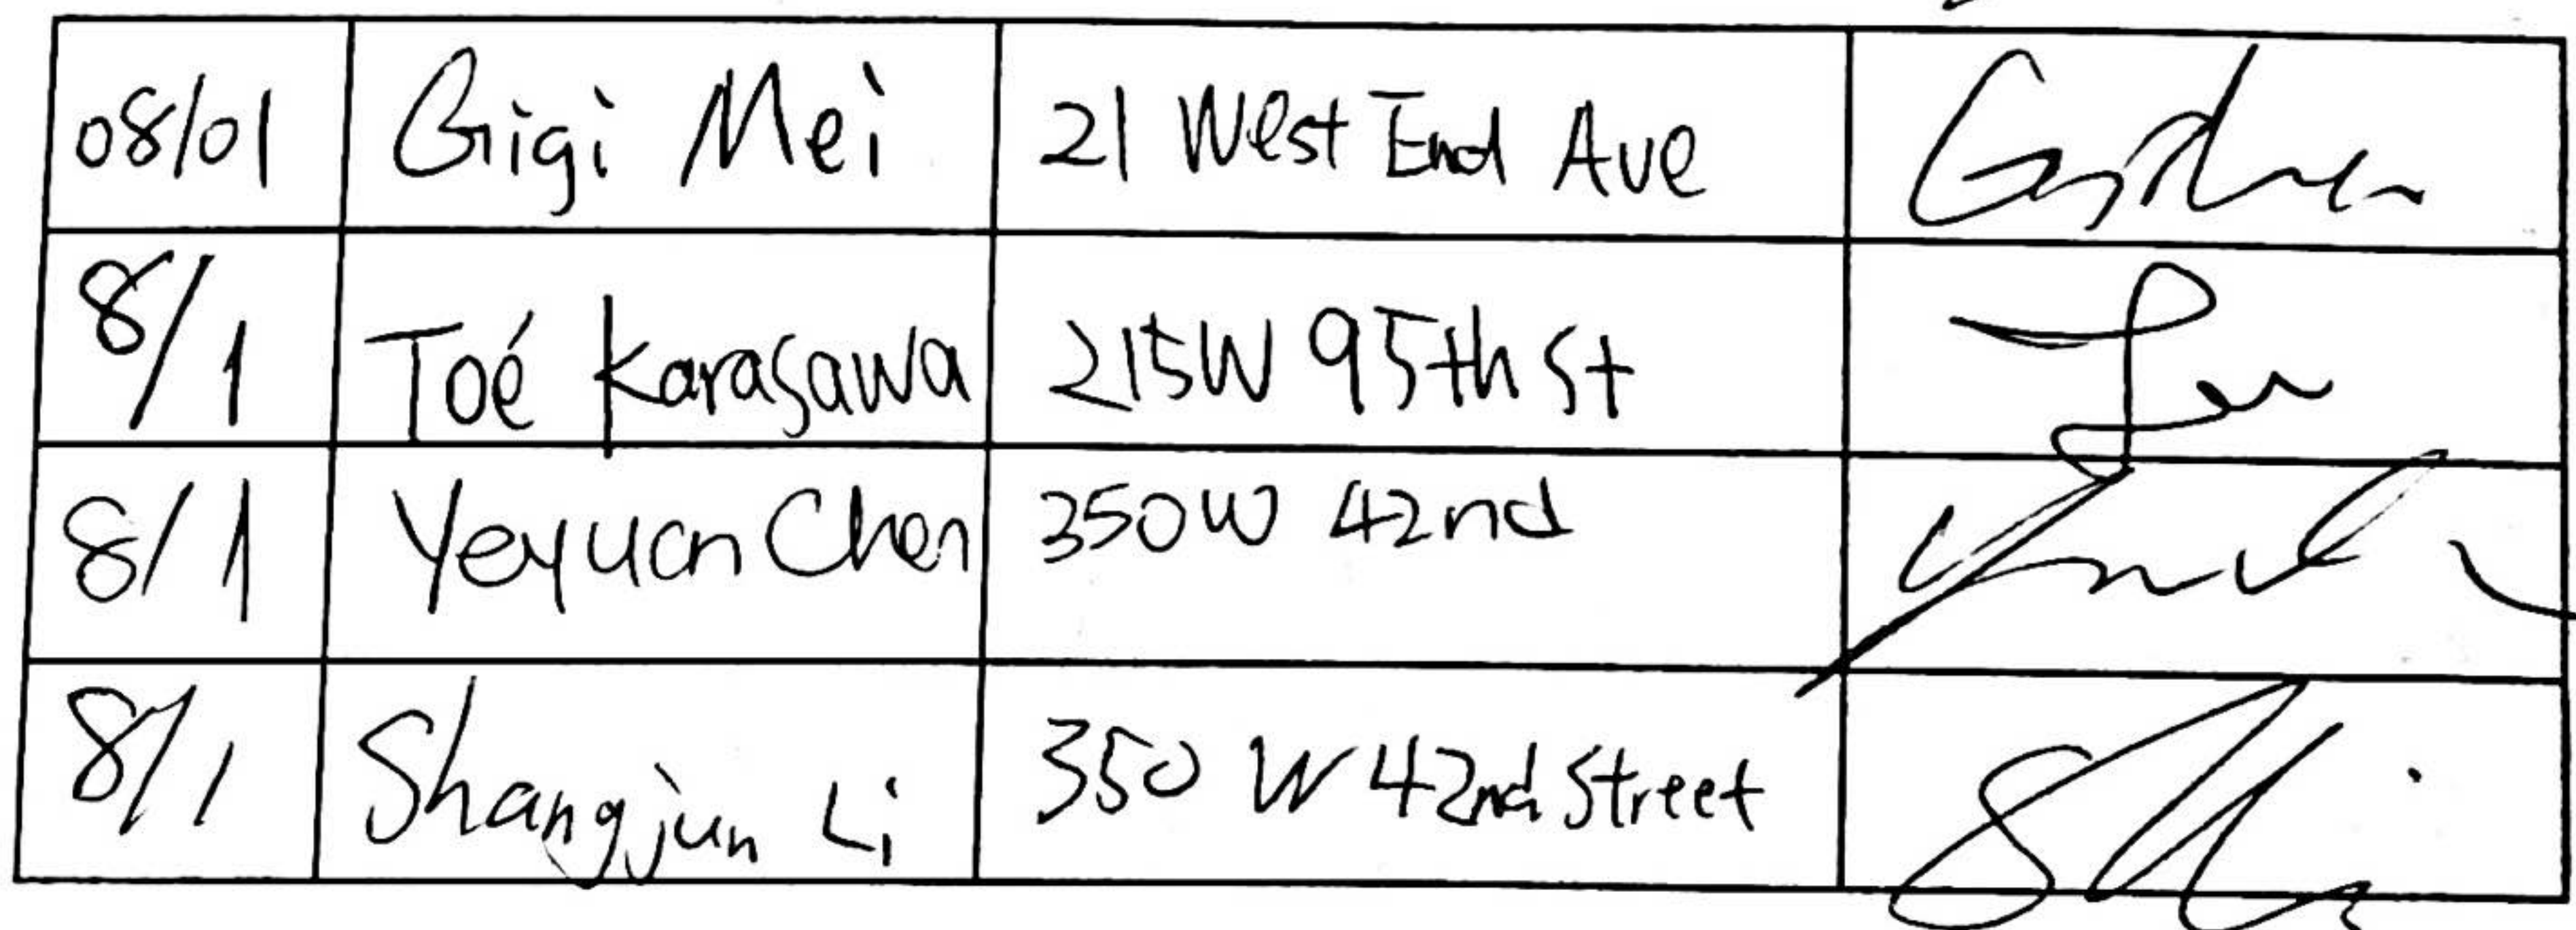 08/01 Gigi Mei 21 West End Ave
8/1 Toé Karasawa 215W 95th St
8/1 Yeyuan Chen 350W 42nd
8/1 Shangjun Li 350 W 42nd Street